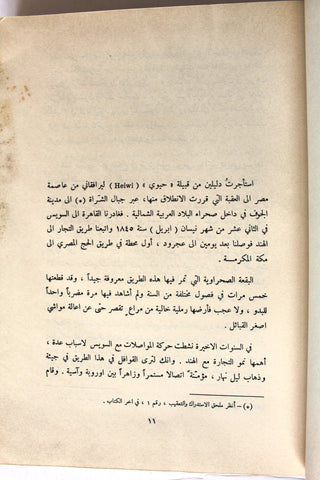 استأجرتُ دليلين من قبيلة « حيوي » ( Heiwi ) ليرافقاني من عاصمة
مصر الى العقبة التي قررت الانطلاق منها، عبر جبال الشّراة (*) الى مدينة
الجوف في داخل صحراء البلاد العربية الشمالية . فغادرنا القاهرة الى السويس
في الثاني عشر من شهر نيسان ( ابريل ) سنة ١٨٤٥ واتبعنا طريق التجار الى
الهند فوصلنا بعد يومين الى عجرود ، أول محطة في طريق الحج المصري الى
مكة المكرمة .
البقعة الصحراوية التي تمر فيها هذه الطريق معروفة جيداً ، وقد قطعتها
خمس مرات في فصول مختلفة من السنة ولم أشاهد فيها مرة مضرباً واحداً
للبدو ، ولا عجب فأرضها رملية خالية من مراعٍ تقصر حتى عن اعالة مواشي
اصغر القبائل .
في السنوات الاخيرة نشطت حركة المواصلات مع السويس لاسباب عدة ،
أهمها نمو التجارة مع الهند . وانك لترى القوافل في هذا الطريق في جيئة
وذهاب ليل نهار ، مؤمّنةً اتصالا مستمراً وزاهراً بين اوروبة وآسية . وقام
(*) – أنظر ملحق الاستدراك والتعقيب ، رقم ١ ، في اخر الكتاب .
١١